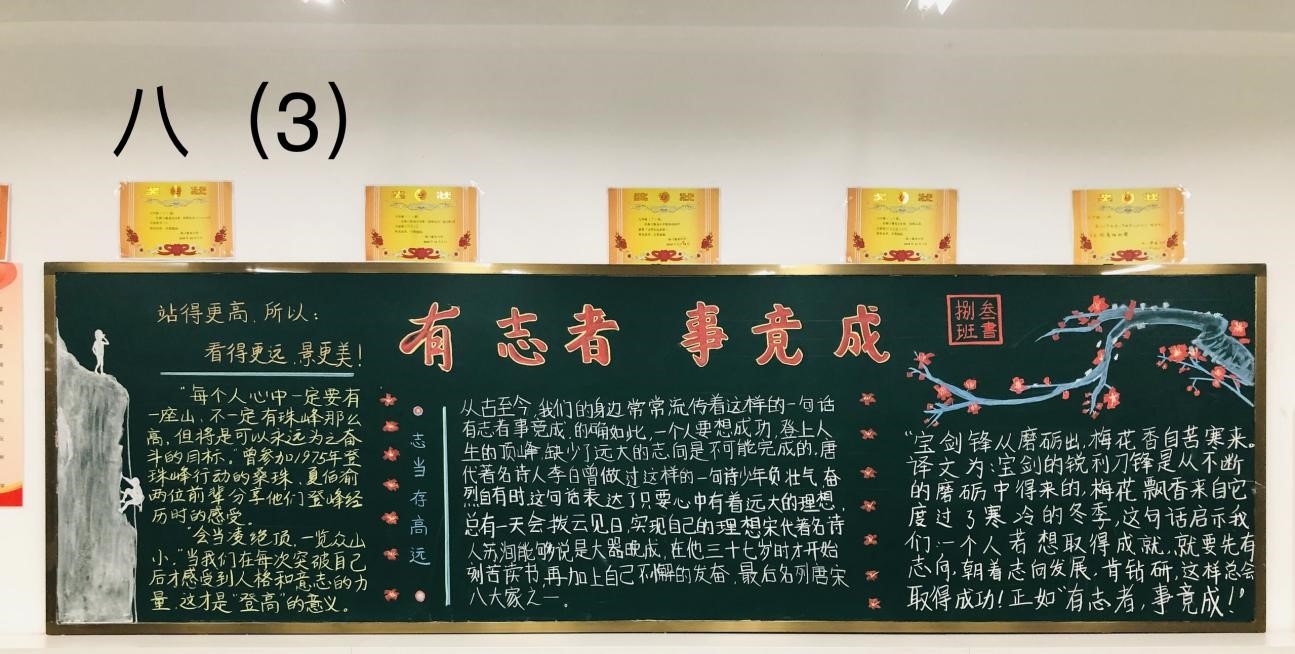 八（3）
奖状
奖状
奖状
奖状
奖状
站得更高、所以：
看得更远、景更美！
“每个人心中一定要有
一座山，不一定有珠峰那么
高，但将是可以永远为之奋
斗的目标。”曾参加1975年登
珠峰行动的桑珠、夏伯渝
两位前辈分享他们登峰经
历时的感受。
“会当凌绝顶，一览众山
小。”当我们在每次突破自己
后才感受到人格和意志的力
量，这才是“登高”的意义。
有志者 事竟成
志当存高远
从古至今，我们的身边常常流传着这样的一句话
有志者事竟成，的确如此，一个人要想成功，登上人
生的顶峰，缺少了远大的志向是不可能完成的，唐
代著名诗人李白曾做过这样的一句诗少年负壮气，奋
烈自有时，这句话表达了只要心中有着远大的理想，
总有一天会拨云见日，实现自己的理想宋代著名诗
人苏洵能够说是大器晚成，在他三十七岁时才开始
刻苦读书，再加上自己不懈的发奋，最后名列唐宋
八大家之一。
捌叁
班書
“宝剑锋从磨砺出，梅花香自苦寒来。
译文为：宝剑的锐利刀锋是从不断
的磨砺中得来的，梅花飘香来自它
度过了寒冷的冬季，这句话启示我
们：一个人若想取得成就，就要先有
志向，朝着志向发展，肯钻研，这样总会
取得成功！正如“有志者，事竟成！”